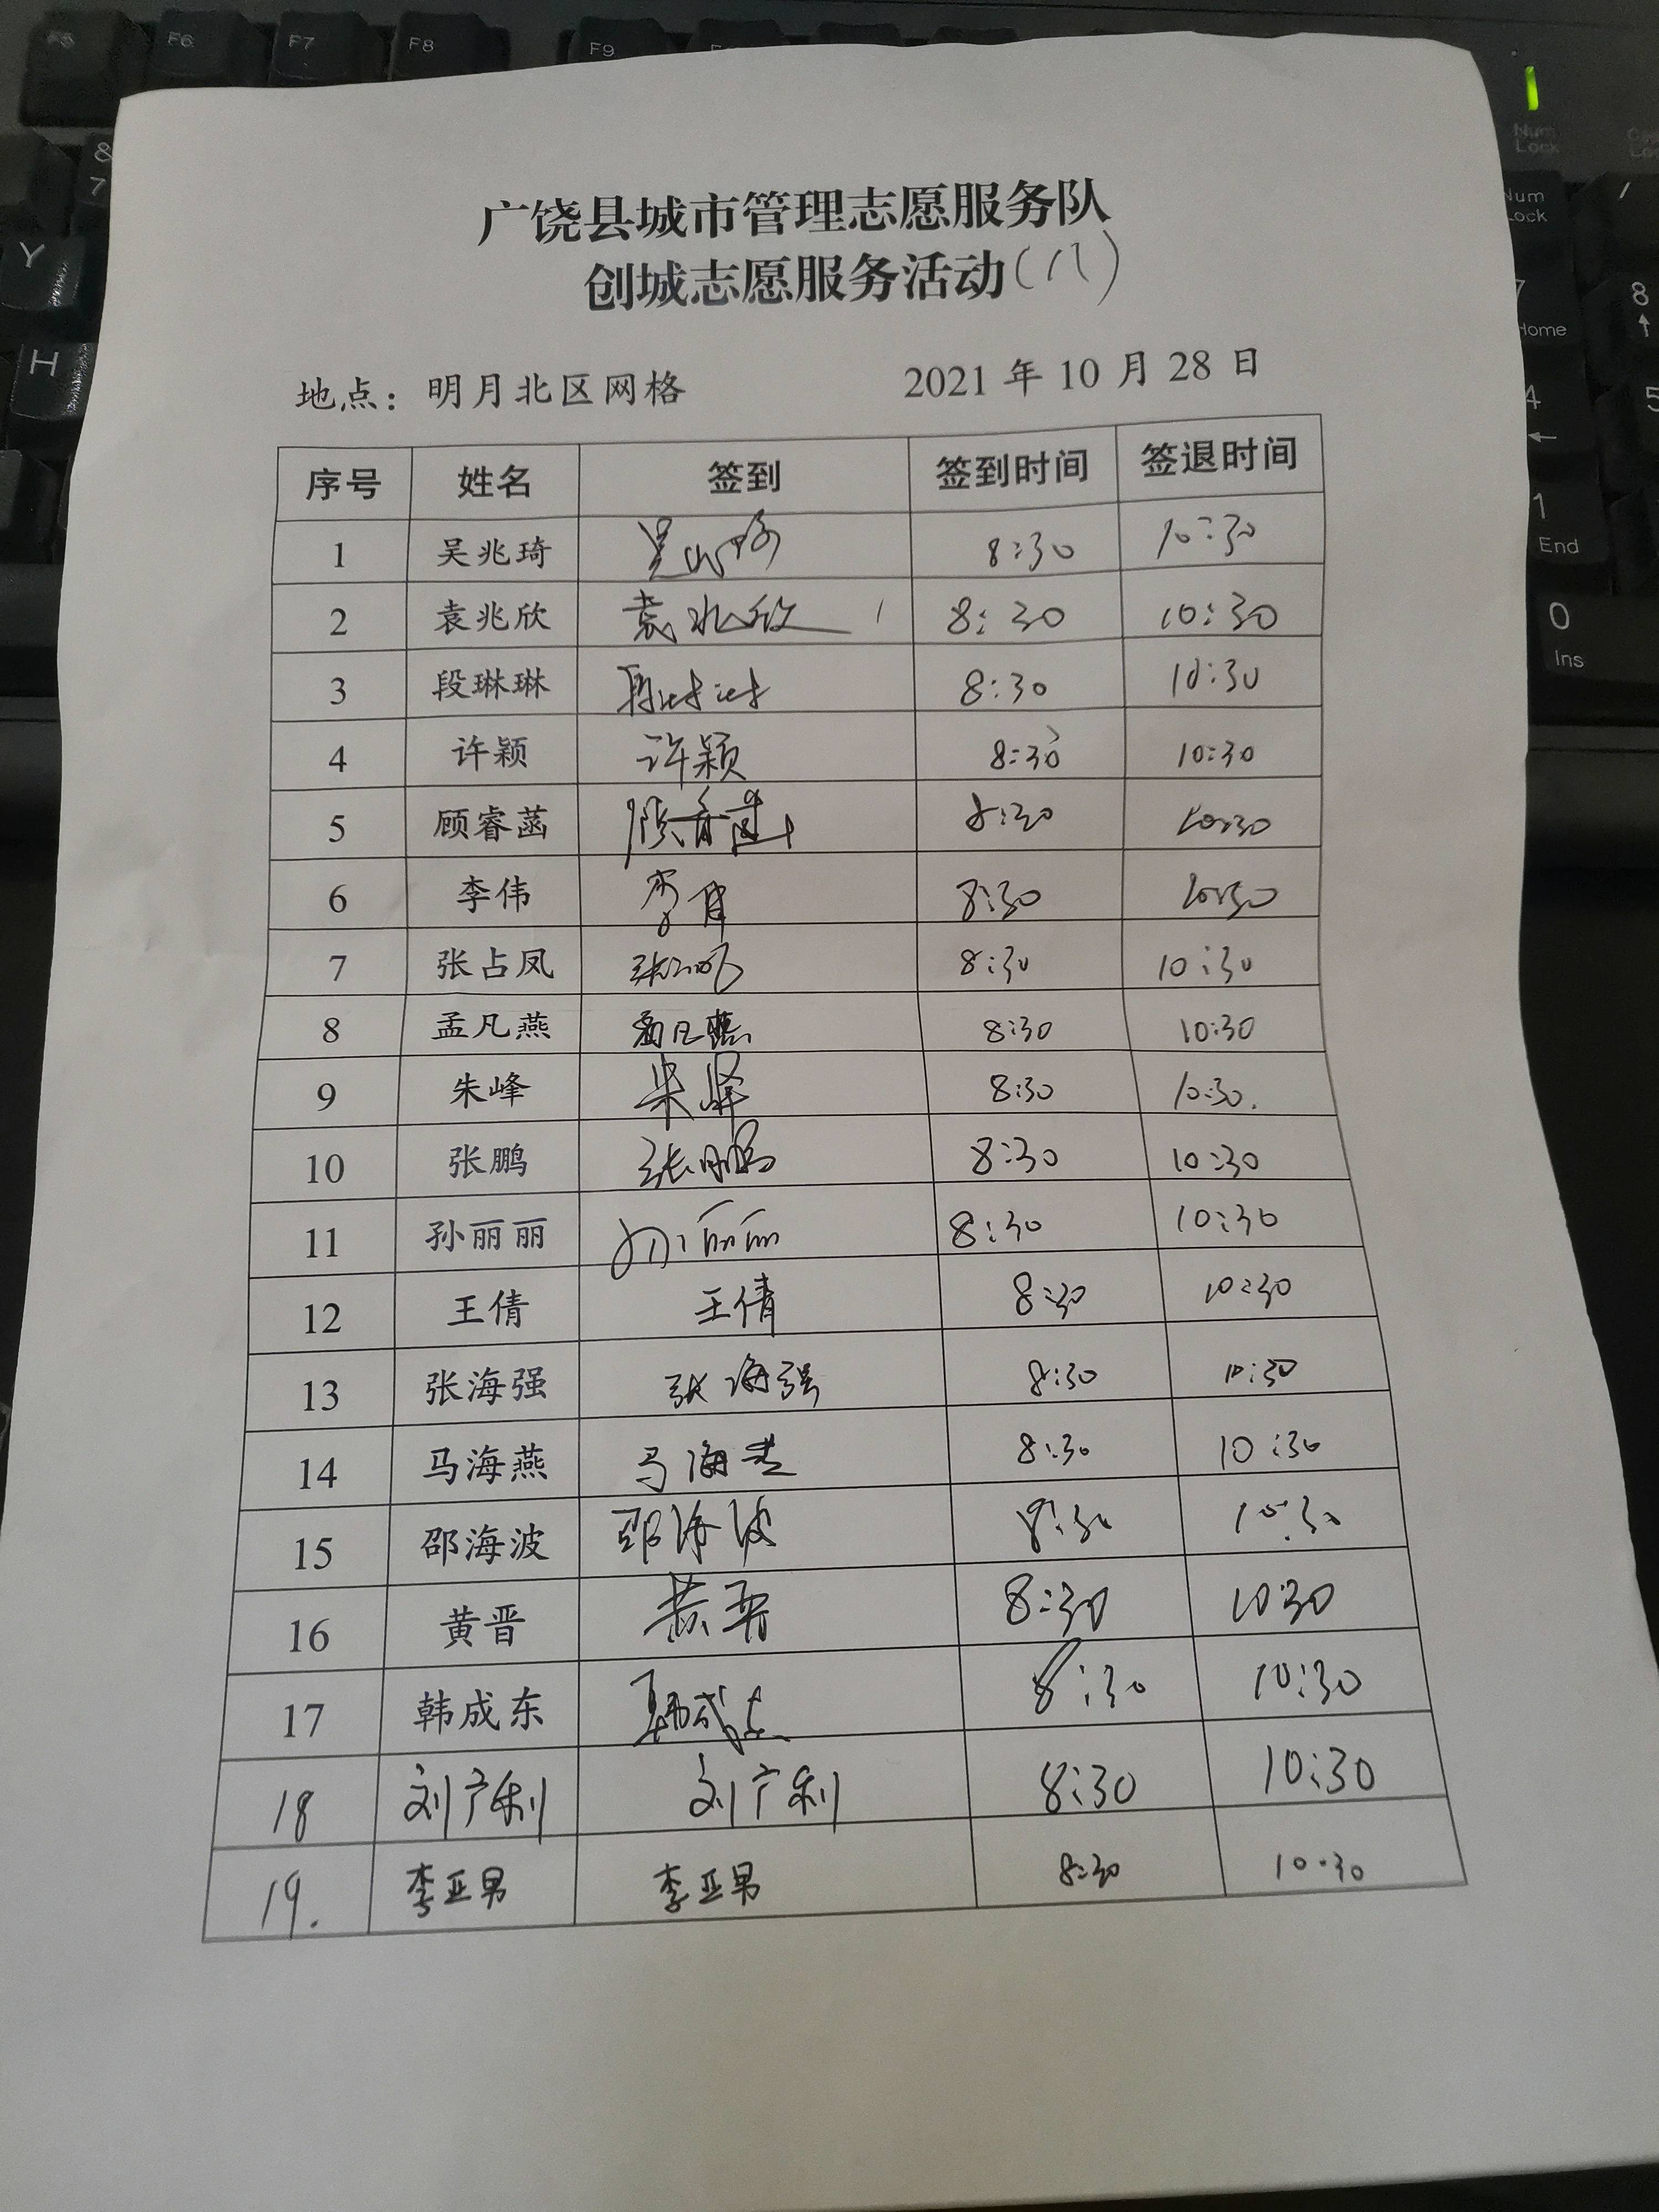 广饶县城市管理志愿服务队
创城志愿服务活动(八)
地点：明月北区网格 2021 年 10 月 28 日
序号 姓名 签到 签到时间 签退时间
1 吴兆琦 吴兆琦 8:30 10:30
2 袁兆欣 袁兆欣 8:30 10:30
3 段琳琳 段琳琳 8:30 10:30
4 许颖 许颖 8:30 10:30
5 顾睿菡 顾睿菡 8:30 10:30
6 李伟 李伟 8:30 10:30
7 张占凤 张占凤 8:30 10:30
8 孟凡燕 孟凡燕 8:30 10:30
9 朱峰 朱峰 8:30 10:30.
10 张鹏 张鹏 8:30 10:30
11 孙丽丽 孙丽丽 8:30 10:30
12 王倩 王倩 8:30 10:30
13 张海强 张海强 8:30 10:30
14 马海燕 马海燕 8:30 10:30
15 邵海波 邵海波 8:30 10:30
16 黄晋 黄晋 8:30 10:30
17 韩成东 韩成东 8:30 10:30
18 刘广利 刘广利 8:30 10:30
19. 李亚男 李亚男 8:30 10:30
F5 F6 F7 F8 F9
&
7
Y
H
Num
Lock
Num
Lock
/
7
Home
8
4
5
1
End
0
Ins